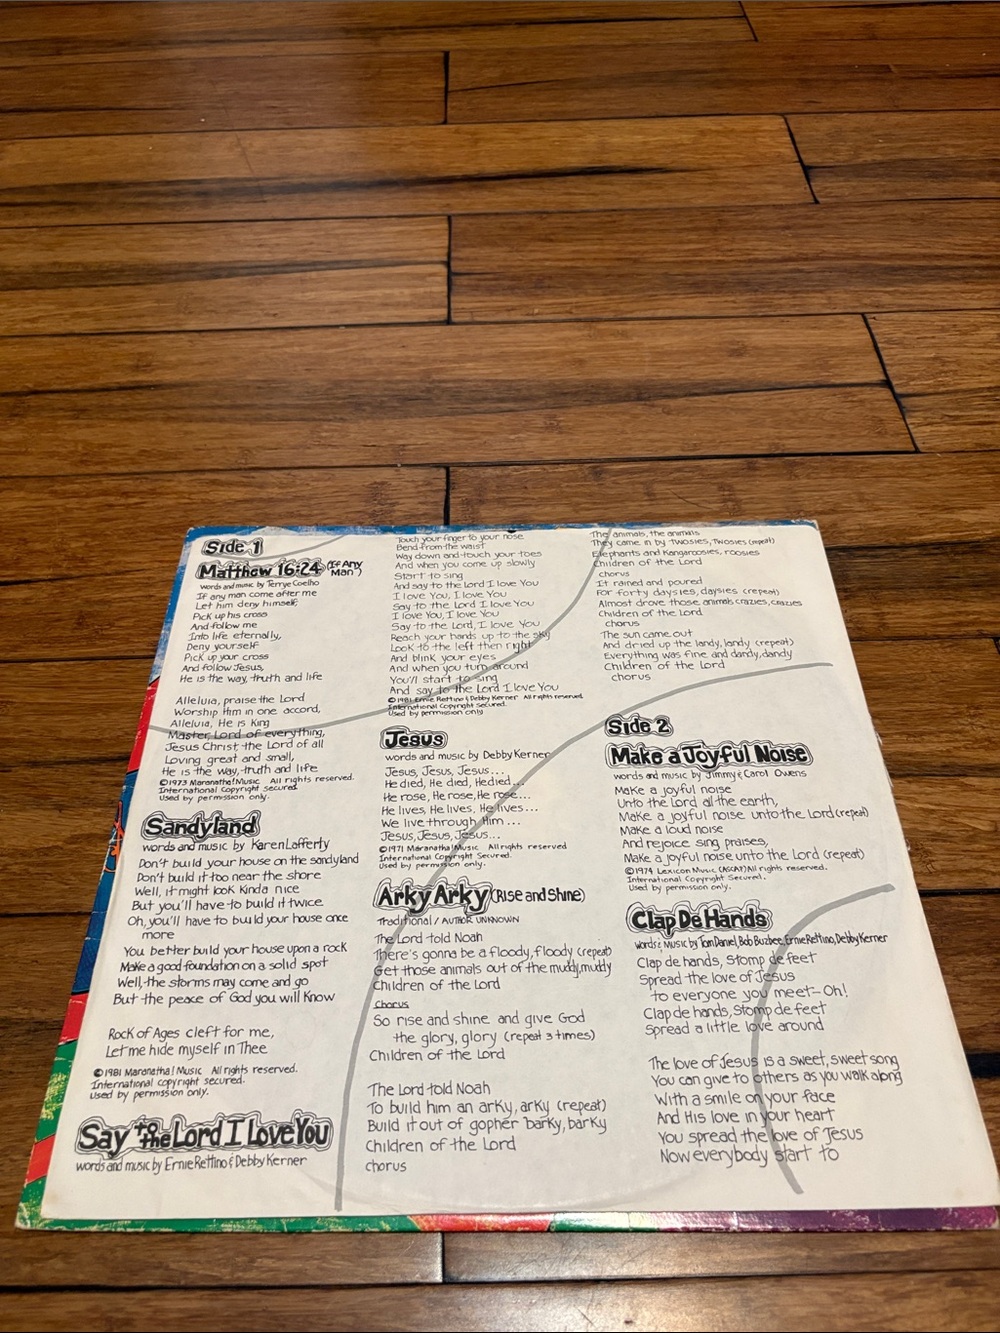 Side 1
Matthew 16:24 (If Any Man)
words and music by Terrye Coelho
If any man come after me
Let him deny himself,
Pick up his cross
And follow me
Into life eternally,
Deny yourself
Pick up your cross
And follow Jesus,
He is the way, truth and life
Alleluia, praise the Lord
Worship Him in one accord,
Alleluia, He is King
Master, Lord of everything,
Jesus Christ, the Lord of all
Loving great and small,
He is the way, truth and life
©1973 Maranatha! Music All rights reserved.
International copyright secured.
Used by permission only.
Sandyland
words and music by Karen Lafferty
Don't build your house on the sandyland
Don't build it too near the shore
Well, it might look kinda nice
But you'll have to build it twice
Oh, you'll have to build your house once
more
You better build your house upon a rock
Make a good foundation on a solid spot
Well, the storms may come and go
But the peace of God you will know
Rock of Ages cleft for me,
Let me hide myself in Thee
©1981 Maranatha! Music All rights reserved.
International copyright secured.
Used by permission only.
Say to the Lord I Love You
words and music by Ernie Rettino & Debby Kerner
Touch your finger to your nose
Bend from the waist
Way down and touch your toes
And when you come up slowly
Start to sing
And say to the Lord I love You
I love You, I love You
Say to the Lord I love You
I love You, I love You
Say to the Lord, I love You
Reach your hands up to the sky
Look to the left then right
And blink your eyes
And when you turn around
You'll start to sing
And say to the Lord I love You
©1981 Ernie Rettino & Debby Kerner All rights reserved.
International Copyright Secured.
Used by permission only
Jesus
words and music by Debby Kerner
Jesus, Jesus, Jesus...
He died, He died, He died...
He rose, He rose, He rose...
He lives, He lives, He lives...
We live through Him...
Jesus, Jesus, Jesus...
©1971 Maranatha! Music All rights reserved
International Copyright Secured.
Used by permission only.
Arky Arky (Rise and Shine)
Traditional / Author Unknown
The Lord told Noah
There's gonna be a floody, floody (repeat)
Get those animals out of the muddy, muddy
Children of the Lord
Chorus
So rise and shine and give God
the glory, glory (repeat 3 times)
Children of the Lord
The Lord told Noah
To build him an arky, arky (repeat)
Build it out of gopher barky, barky
Children of the Lord
chorus
The animals, the animals
They came in by twosies, twosies (repeat)
Elephants and Kangaroosies, roosies
Children of the Lord
chorus
It rained and poured
For forty daysies, daysies (repeat)
Almost drove those animals crazies, crazies
Children of the Lord
chorus
The sun came out
And dried up the landy, landy (repeat)
Everything was fine and dandy, dandy
Children of the Lord
chorus
Side 2
Make a Joyful Noise
words and music by Jimmy & Carol Owens
Make a joyful noise
Unto the Lord all the earth,
Make a joyful noise unto the Lord (repeat)
Make a loud noise
And rejoice sing praises,
Make a joyful noise unto the Lord (repeat)
©1974 Lexicon Music (ASCAP) All rights reserved.
International Copyright Secured.
Used by permission only.
Clap De Hands
words & Music by Tom Daniel, Bob Buzbee, Ernie Rettino, Debby Kerner
Clap de hands, stomp de feet
Spread the love of Jesus
to everyone you meet—Oh!
Clap de hands, stomp de feet
Spread a little love around
The love of Jesus is a sweet, sweet song
You can give to others as you walk along
With a smile on your face
And His love in your heart
You spread the love of Jesus
Now everybody start to